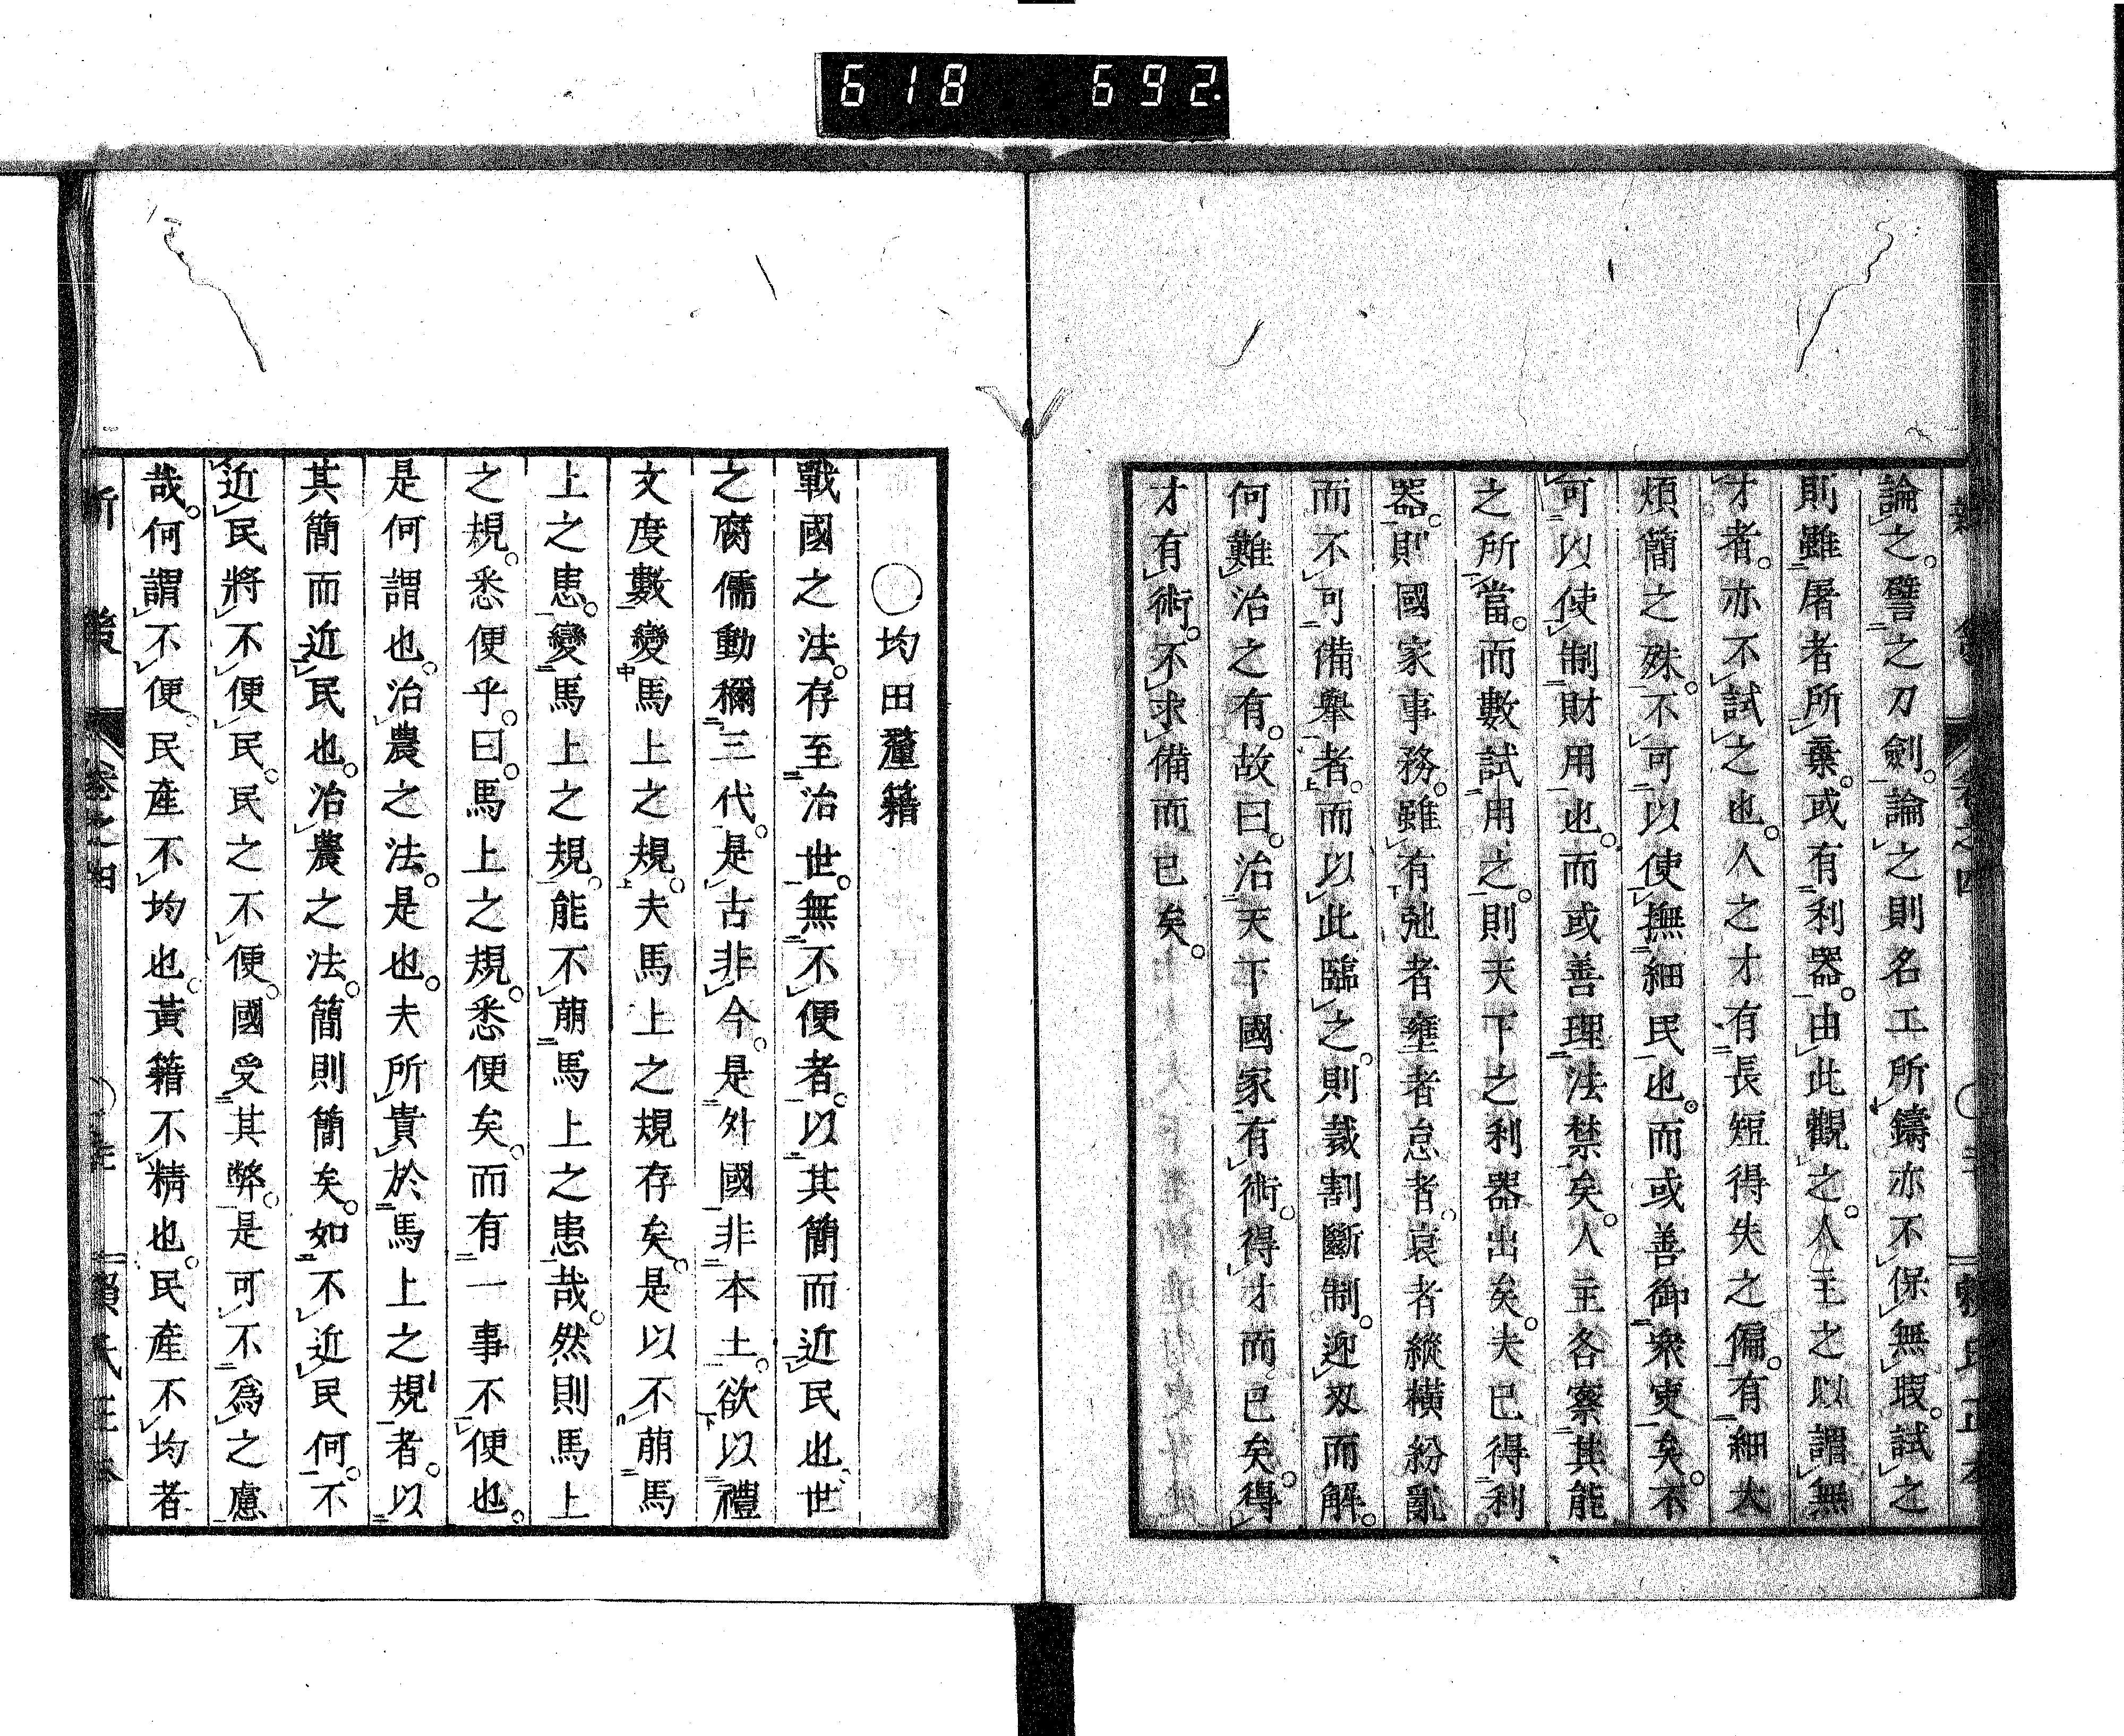 618 692
新策 卷之四 賴氏正本
論之。譬之刀劍。論之則名工所鑄亦不保無瑕。試之
則雖屠者所棄。或有利器。由此觀之。人主之以謂無
才者。亦不試之也。人之才有長短得失之偏。有細大
煩簡之殊。不可以使撫細民也。而或善御衆吏矣。不
可以使制財用也。而或善理法禁矣。人主各察其能
之所當。而數試用之。則天下之利器出矣。夫已得利
器。則國家事務。雖有弛者壅者怠者。衰者縱橫紛亂
而不可備擧者。而以此臨之。則裁割斷制。迎刃而解。
何難治之有。故曰。治天下國家有術。得才而已矣。得
才有術。不求備而已矣。
○均田釐籍
戰國之法。存至治世。無不便者。以其簡而近民也。世
之腐儒動稱三代。是古非今。是外國非本土。欲以禮
文度數變馬上之規。夫馬上之規存矣。是以不萠馬
上之患。變馬上之規。能不萠馬上之患哉。然則馬上
之規。悉便乎。曰。馬上之規。悉便矣。而有一事不便也。
是何謂也。治農之法。是也。夫所貴於馬上之規者。以
其簡而近民也。治農之法。簡則簡矣。如不近民何。不
近民將不便民。民之不便。國受其弊。是可不爲之慮
哉。何謂不便。民產不均也。黃籍不精也。民產不均者
新策 卷之四 賴氏正本